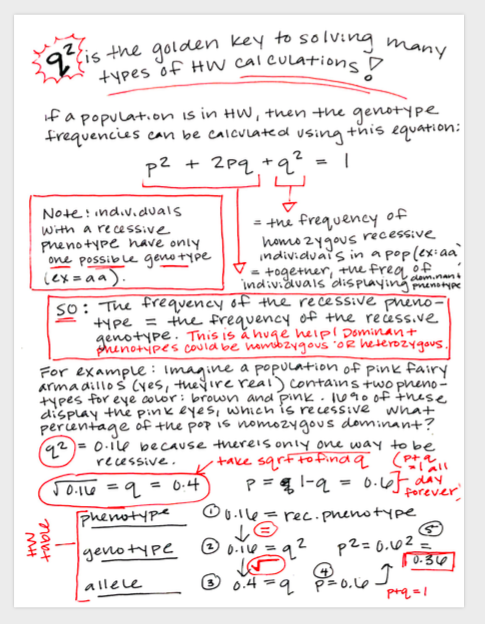 q² is the golden key to solving many
types of HW calculations!
if a population is in HW, then the genotype
frequencies can be calculated using this equation:
p² + 2pq + q² = 1
Note: individuals
with a recessive
phenotype have only
one possible genotype
(ex = aa).
= the frequency of
homozygous recessive
individuals in a pop (ex: aa)
= together, the freq of
individuals displaying dominant phenotype
SO: The frequency of the recessive pheno-
type = the frequency of the recessive
genotype. This is a huge help! Dominant
phenotypes could be homozygous OR heterozygous.
For example: Imagine a population of pink fairy
armadillos (yes, they're real) contains two pheno-
types for eye color: brown and pink. 16% of these
display the pink eyes, which is recessive what
percentage of the pop is homozygous dominant?
q² = 0.16 because there is only one way to be
recessive.
← take sqrt to find q
√0.16 = q = 0.4
p = 1-q = 0.6
(p+q
=1 all
day
forever)
HW
table
phenotype
① 0.16 = rec. phenotype
=
genotype
② 0.16 = q²
p² = 0.6² =
⑤
0.36
√
allele
③ 0.4 = q
④
p=0.6
p+q=1